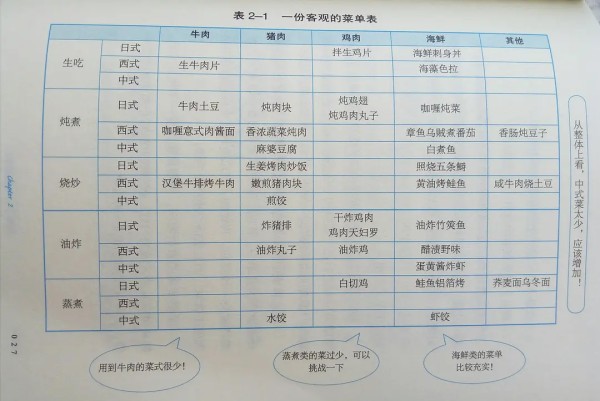 表 2—1 一份客观的菜单表
牛肉 猪肉 鸡肉 海鲜 其他
生吃 日式 拌生鸡片 海鲜刺身丼
西式 生牛肉片 海藻色拉
中式
炖煮 日式 牛肉土豆 炖肉块 炖鸡翅 咖喱炖菜
炖鸡肉丸子
西式 咖喱意式肉酱面 香浓蔬菜炖肉 章鱼乌贼煮番茄 香肠炖豆子
中式 麻婆豆腐 白煮鱼
烧炒 日式 生姜烤肉炒饭 照烧五条鰤
西式 汉堡牛排烤牛肉 嫩煎猪肉块 黄油烤鲑鱼 咸牛肉烧土豆
中式 煎饺
油炸 日式 炸猪排 干炸鸡肉 油炸竹荚鱼
鸡肉天妇罗
西式 油炸丸子 油炸鸡 醋渍野味
中式 蛋黄酱炸虾
蒸煮 日式 白切鸡 鲑鱼铝箔烤 荞麦面乌冬面
西式
中式 水饺 虾饺
用到牛肉的菜式很少！
蒸煮类的菜过少，可以
挑战一下
海鲜类的菜单
比较充实！
从整体上看，中式菜太少，应该增加！
Chapter 2
027